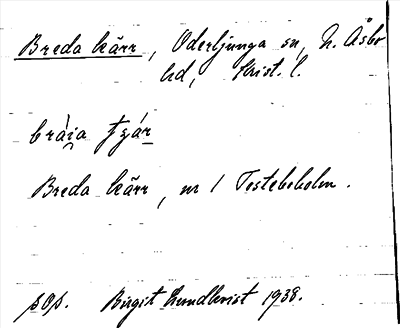 Breda kärr, Oderljunga sn, N. Åsbo
hd, Krist. l.
Breda kärr, nr 1 Testebokolm.
pop. Birgit Lundkvist 1938.